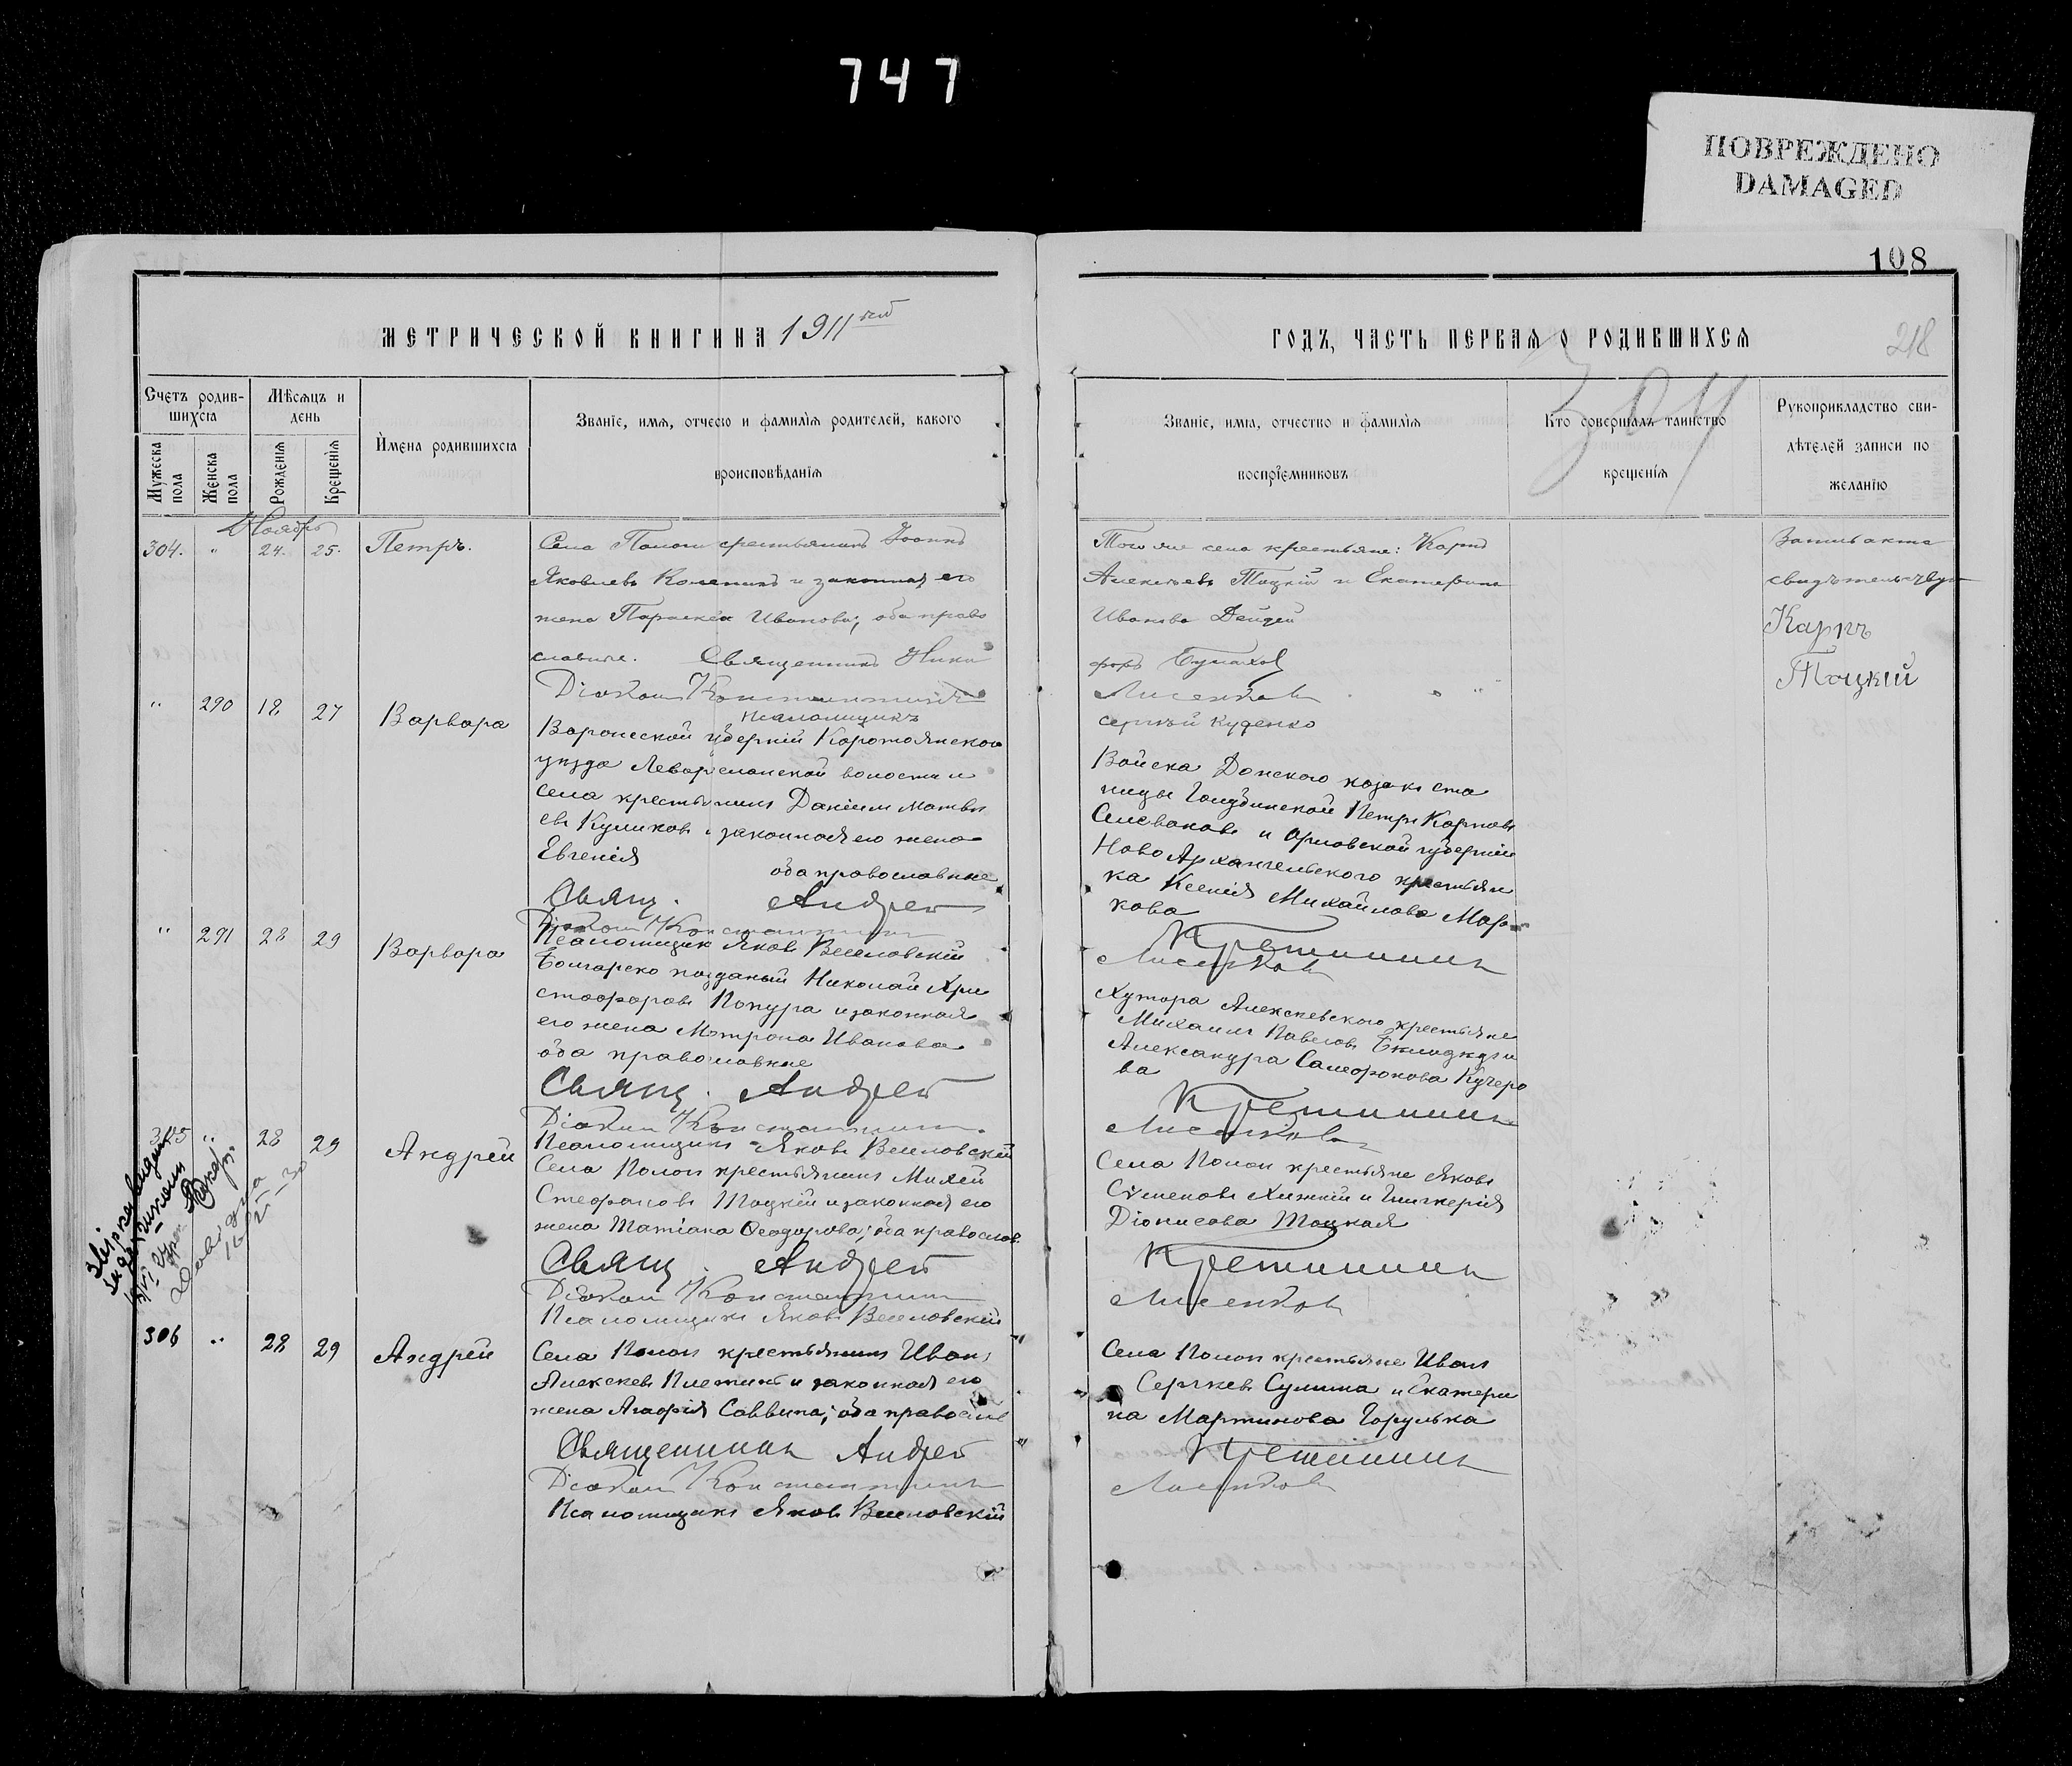 747
ПОВРЕЖДЕНО
DAMAGED
108
МЕТРИЧЕСКОЙ КНИГИ НА 1911 год
ГОДЪ, ЧАСТЬ ПЕРВАЯ О РОДИВШИХСЯ
218
304
Счетъ родив-
шихсіа
Мѣсяцъ и
день
Мужеска
пола
Женска
пола
Рожденія
Крещенія
Имена родившихсіа
Званіе, имя, отчесіо и фамилія родителей, какого
вроисповѣданія
Званіе, имія, отчество и фамилія
воспріемниковъ
Кто совершалъ таинство
крещенія
Рукоприкладство сви-
дѣтелей записи по
желанію
Ноябрь
304. " 24. 25. Петръ.
Села Пологи крестьянинъ Іоаннъ
Яковлевъ и законная его
жена Параскева Иванова, оба право
славные. Священникъ Ники
Діаконъ Константинъ
псаломщикъ
Того же села крестьяне: Карпъ
Алексѣевъ Тоцкій и Екатерина
Иванова Дейдей
форъ
Лисенков
сергѣй Куценко
Запись акта
Карпъ
Тоцкій
" 290 18 27 Варвара
Воронеской губерніи Коротоянского
уѣзда волости и
села крестьянинъ Даніилъ Матвѣ
евъ Куликовъ и законная его жена
Евгенія
оба православные
Свящ. Андрей
Діакон Константин
Псаломщик Яков Веселовскій
Войска Донского козакъ ста
ницы Голубинской Петръ Карповъ
Селевановъ и Орловской губерніи
Ново Архангельского крестьян
ка Ксенія Михайлова Мар
кова
Кретинин
Лисенков
" 291 28 29 Варвара
Болгарско подданый Николай Хри
стофоровъ Попура и законная
его жена Мотрона Иванова
оба православные
Свящ. Андрей
Діакон Константин
Псаломщикъ Яковъ Веселовскій
Хутора Алексѣевского крестьяне
Михаилъ Павловъ и
Александра Самофонова Кучеро
ва
Кретинин
Лисенков
305 " 28 29 Андрей
Села Пологи крестьянинъ Михей
Стефановъ Тоцкій и законная его
жена Татіана Феодорова; оба правослов.
Свящ. Андрей
Діакон Константин
Псаломщикъ Яковъ Веселовскій
Села Пологи крестьяне Яковъ
Сѵменовъ Хижній и Гликерія
Діонисова Тоцкая
Кретинин
Лисенков
306 " 28 29 Андрей
Села Пологи крестьянинъ Иванъ
Алексѣевъ Плетинь и законная его
жена Агафія Саввина; оба православ
Священник Андрей
Діакон Константин
Псаломщикъ Яковъ Веселовскій
Села Пологи крестьяне Иванъ
Сергѣевъ Сулима и Екатери
на Мартинова Горулька
Кретинин
Лисенков